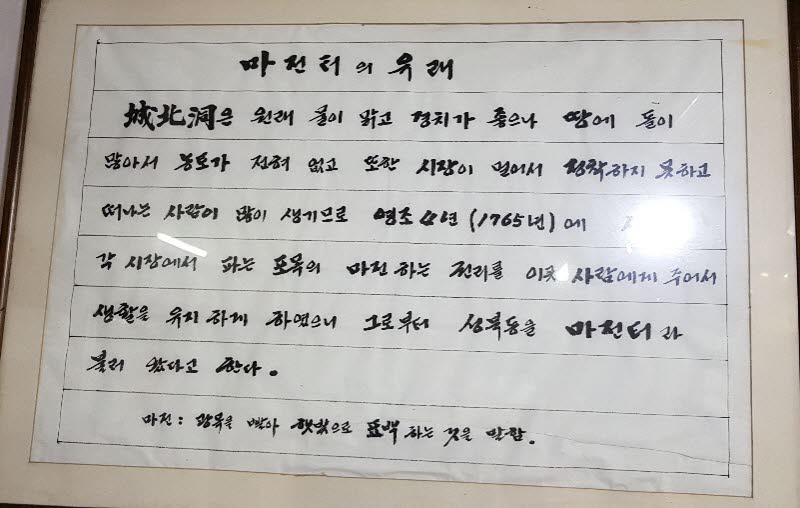 마전터의 유래
城北洞은 원래 물이 맑고 경치가 좋으나 땅에 돌이
많아서 농토가 전혀 없고 또한 시장이 멀어서 정착하지 못하고
떠나는 사람이 많이 생기므로 영조 41년 (1765년)에
각 시장에서 파는 포목의 마전 하는 권리를 이곳 사람에게 주어서
생활을 유지 하게 하였으니 그로부터 성북동을 마전터라
불러 왔다고 한다.
마전: 광목을 빨아 햇빛으로 표백 하는 것을 말함.